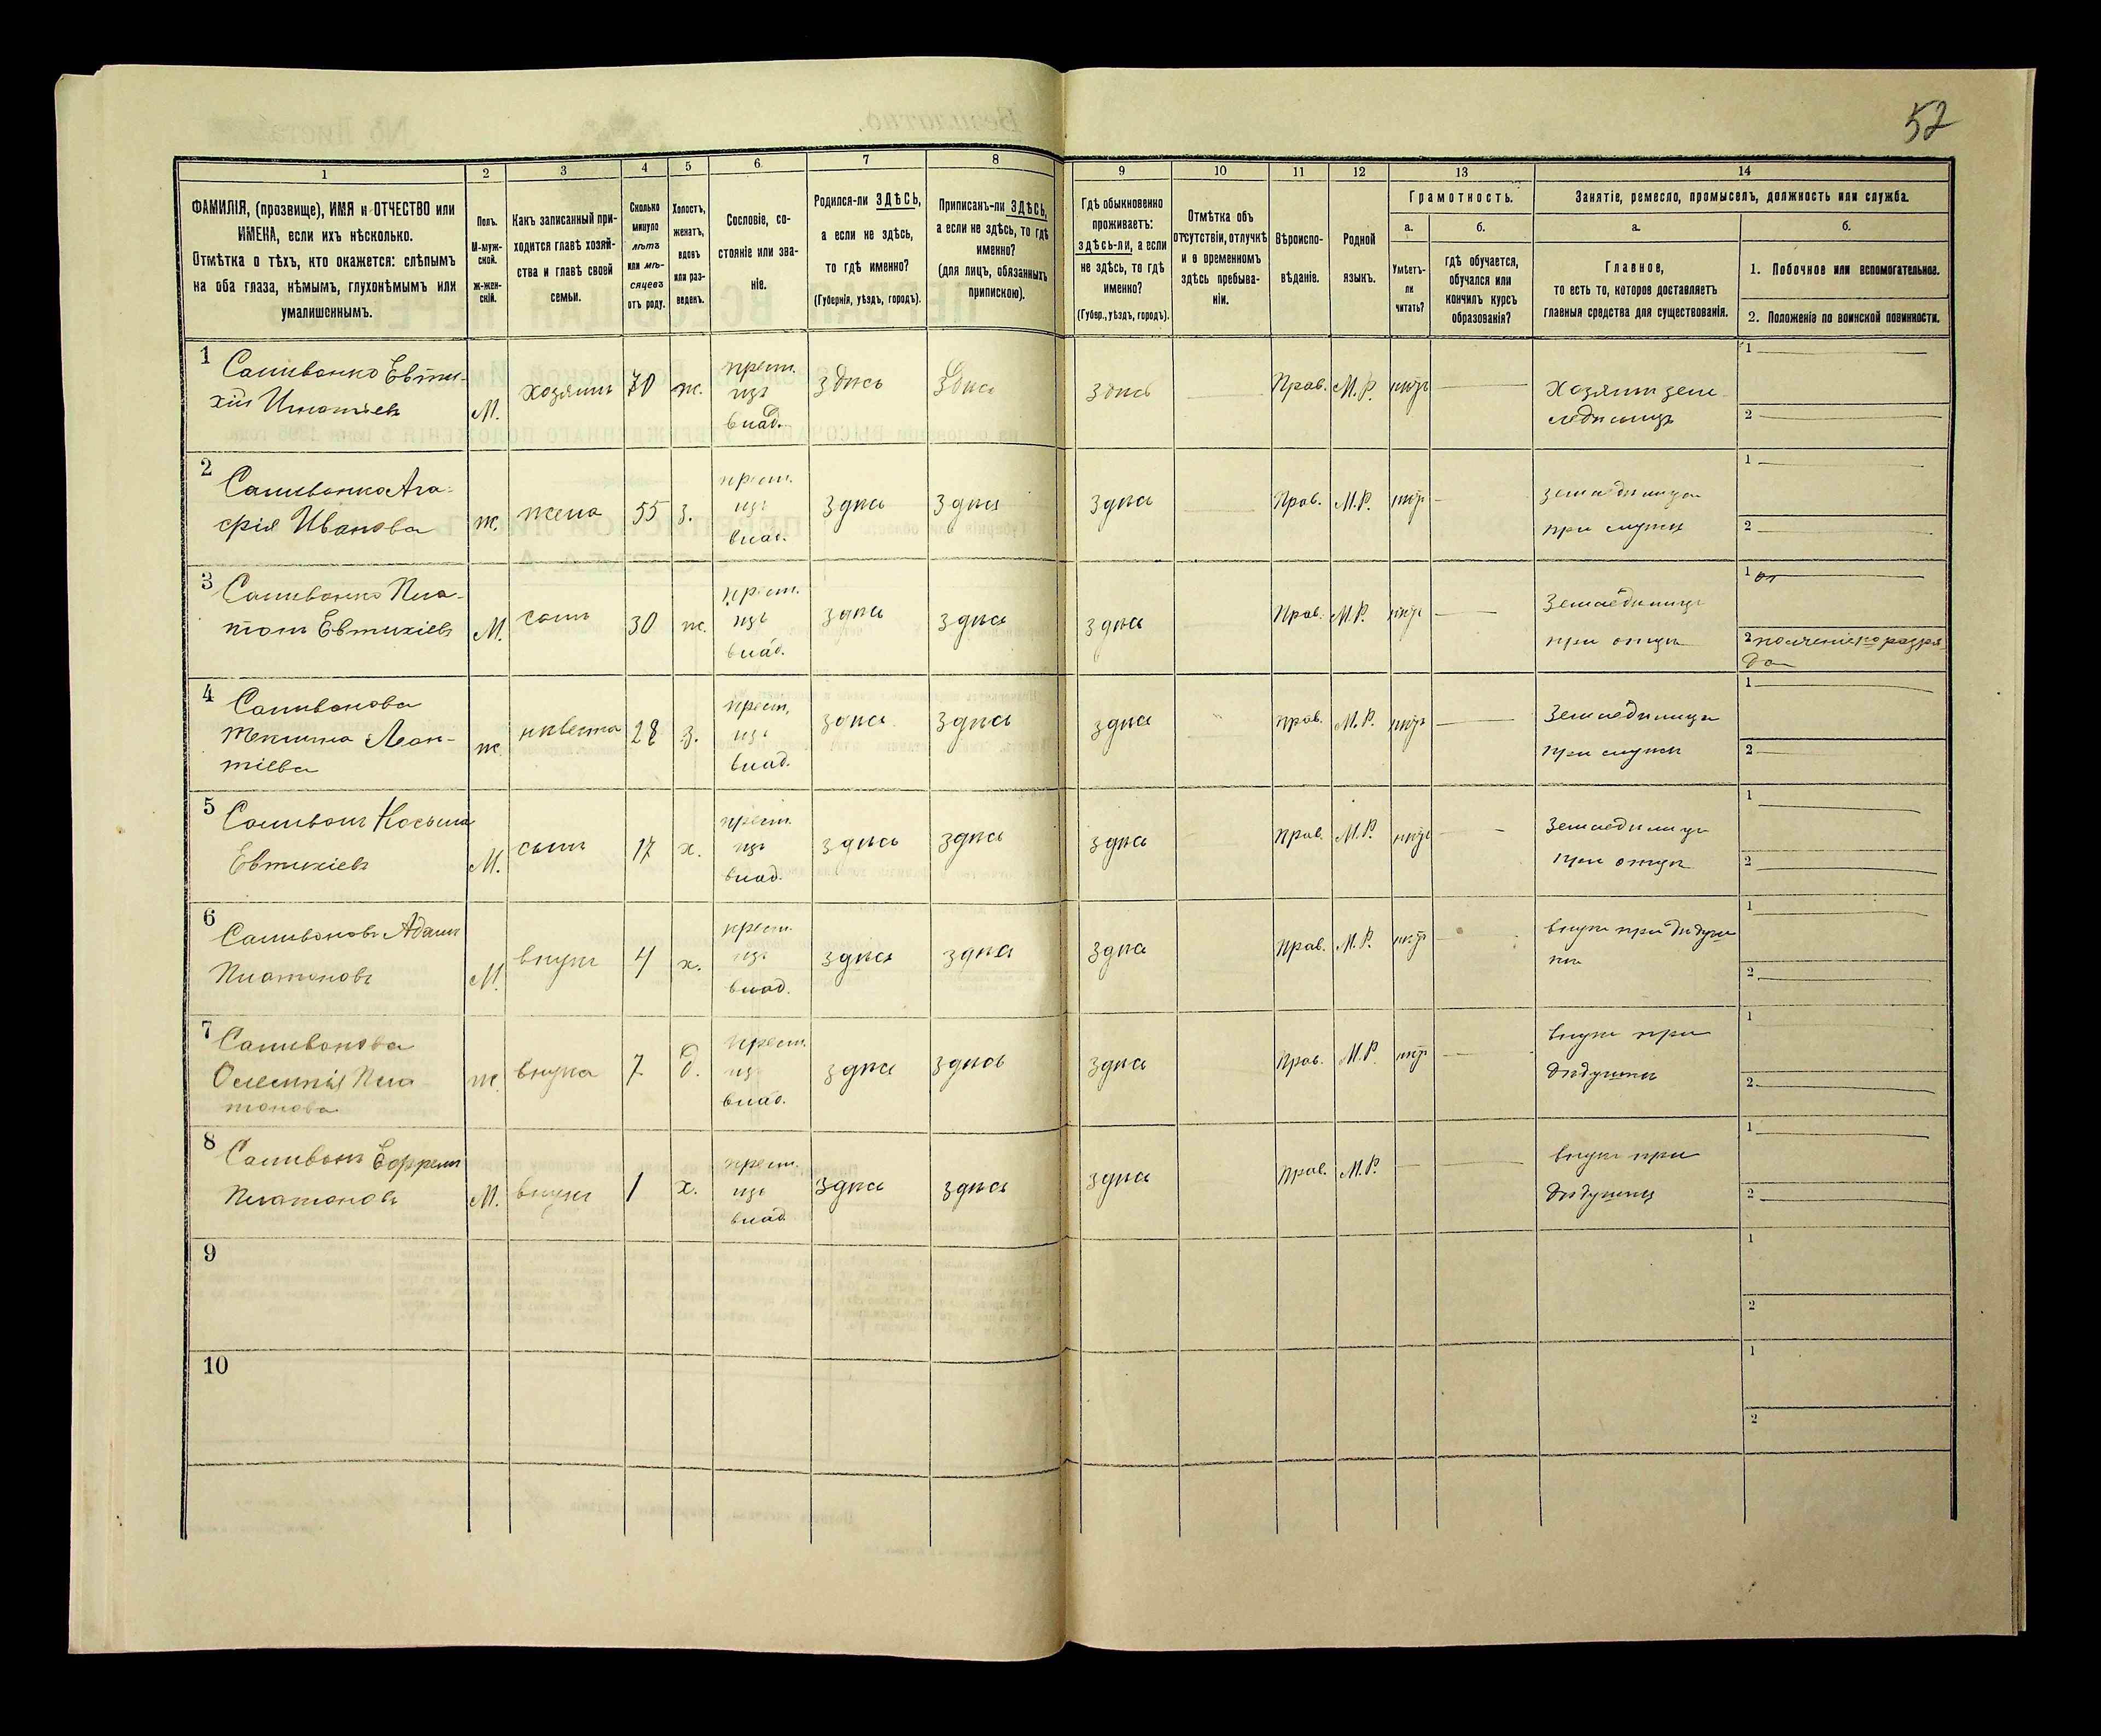 52
1 2 3 4 5 6 7 8 9 10 11 12 13 14
ФАМИЛІЯ, (прозвище), ИМЯ и ОТЧЕСТВО или
ИМЕНА, если ихъ нѣсколько.
Отмѣтка о тѣхъ, кто окажется: слѣпымъ
на оба глаза, нѣмымъ, глухонѣмымъ или
умалишеннымъ.
Полъ.
М-муж-
ской.
ж-жен-
скій.
Какъ записанный при-
ходится главѣ хозяй-
ства и главѣ своей
семьи.
Сколько
минуло
лѣтъ
или мѣ-
сяцевъ
отъ роду.
Холостъ,
женатъ,
вдовъ
или раз-
веденъ.
Сословіе, со-
стояніе или зва-
ніе.
Родился-ли ЗДѢСЬ,
а если не здѣсь,
то гдѣ именно?
(Губернія, уѣздъ, городъ).
Приписанъ-ли ЗДѢСЬ,
а если не здѣсь, то гдѣ
именно?
(для лицъ, обязанныхъ
припискою).
Гдѣ обыкновенно
проживаетъ:
здѣсь-ли, а если
не здѣсь, то гдѣ
именно?
(Губер., уѣздъ, городъ).
Отмѣтка объ
отсутствіи, отлучкѣ
и о временномъ
здѣсь пребыва-
ніи.
Вѣроиспо-
вѣданіе.
Родной
языкъ.
Грамотность.
а.
Умѣетъ-
ли
читать?
б.
гдѣ обучается,
обучался или
кончилъ курсъ
образованія?
Занятіе, ремесло, промыселъ, должность или служба.
а.
Главное,
то есть то, которое доставляетъ
главныя средства для существованія.
б.
1. Побочное или вспомогательное.
2. Положеніе по воинской повинности.
1 Саливонко Евти-
хій Игнатіевъ
М. хозяинъ 70 ж.
крест.
изъ
влад.
здѣсь здѣсь здѣсь Прав. М.Р. нѣтъ
Хозяинъ земле
ledѣлецъ
1
2
2 Саливонко Ага-
фія Иванова
ж. жена 55 з.
крест.
изъ
влад.
здѣсь здѣсь здѣсь Прав. М.Р. нѣтъ
земледѣлица
при мужѣ
1
2
3 Саливонко Пла-
тонъ Евтихіевъ
М. сынъ 30 ж.
крест.
изъ
влад.
здѣсь здѣсь здѣсь Прав. М.Р. нѣтъ
Земледѣлецъ
при отцѣ
1
2
4 Саливонова
Текліна Леон-
тіева
ж. невѣста 28 з.
крест.
изъ
влад.
здѣсь здѣсь здѣсь прав. М.Р. нѣтъ
Земледѣлица
при мужѣ
1
2
5 Саливонъ Косьма
Евтихіевъ
М. сынъ 17 х.
крест.
изъ
влад.
здѣсь здѣсь здѣсь прав. М.Р. нѣтъ
Земледѣлецъ
при отцѣ
1
2
6 Саливоновъ Адамъ
Платоновъ
М. внукъ 4 х.
крест.
изъ
влад.
здѣсь здѣсь здѣсь прав. М.Р. нѣтъ
внукъ при дѣдуш
кѣ
1
2
7 Саливонова
Пла
тонова
ж. внука 7 д.
крест.
изъ
влад.
здѣсь здѣсь здѣсь прав. М.Р. нѣтъ
внука при
дѣдушкѣ
1
2
8 Саливонъ Ефремъ
Платоновъ
М. внукъ 1 х.
крест.
изъ
влад.
здѣсь здѣсь здѣсь прав. М.Р.
внукъ при
дѣдушкѣ
1
2
9
1
2
10
1
2